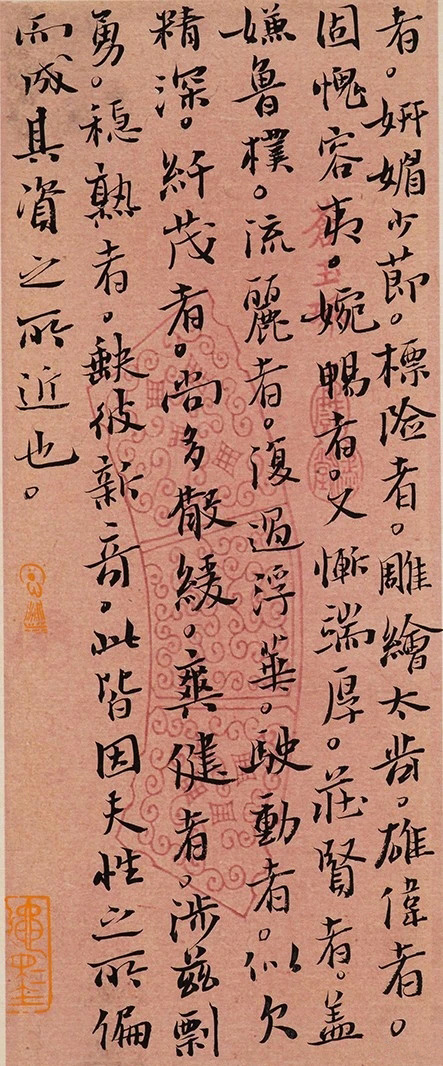 者。妍媚少節。標险者。雕繪太苛。雄偉者。
固愧容夷。婉暢者。又慚端厚。莊賢者。盖
嫌魯樸。流麗者。復過浮華。駛動者。似欠
精深。纤茂者。尚多散緩。爽健者。涉兹剽
勇。穏熟者。缺彼新奇。此皆因夫性之所偏
而成其資之所近也。